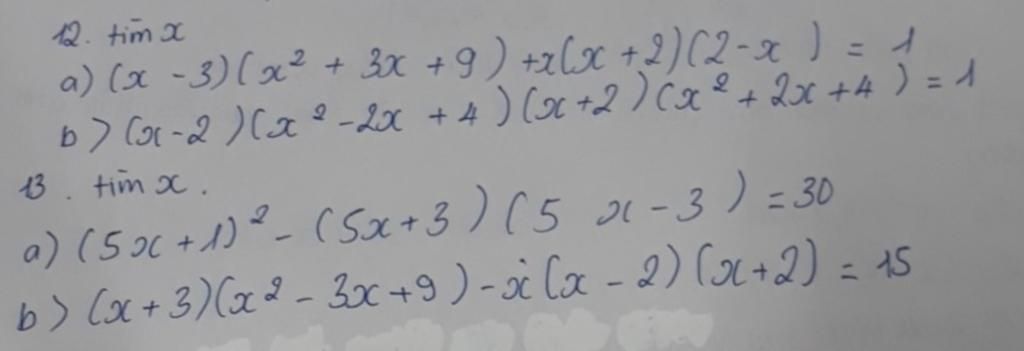 12. tìm x
a) (x - 3)(x² + 3x + 9) + x(x + 2)(2 - x) = 1
b) (x - 2)(x² - 2x + 4)(x + 2)(x² + 2x + 4) = 1
13. tìm x.
a) (5x + 1)² - (5x + 3)(5 x - 3) = 30
b) (x + 3)(x² - 3x + 9) - x(x - 2)(x + 2) = 15